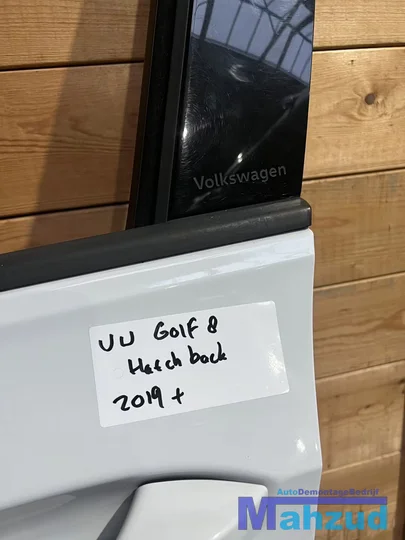 Volkswagen
VW Golf 8
Hatch back
2019 +
AutoDemontageBedrijf
Mahzud